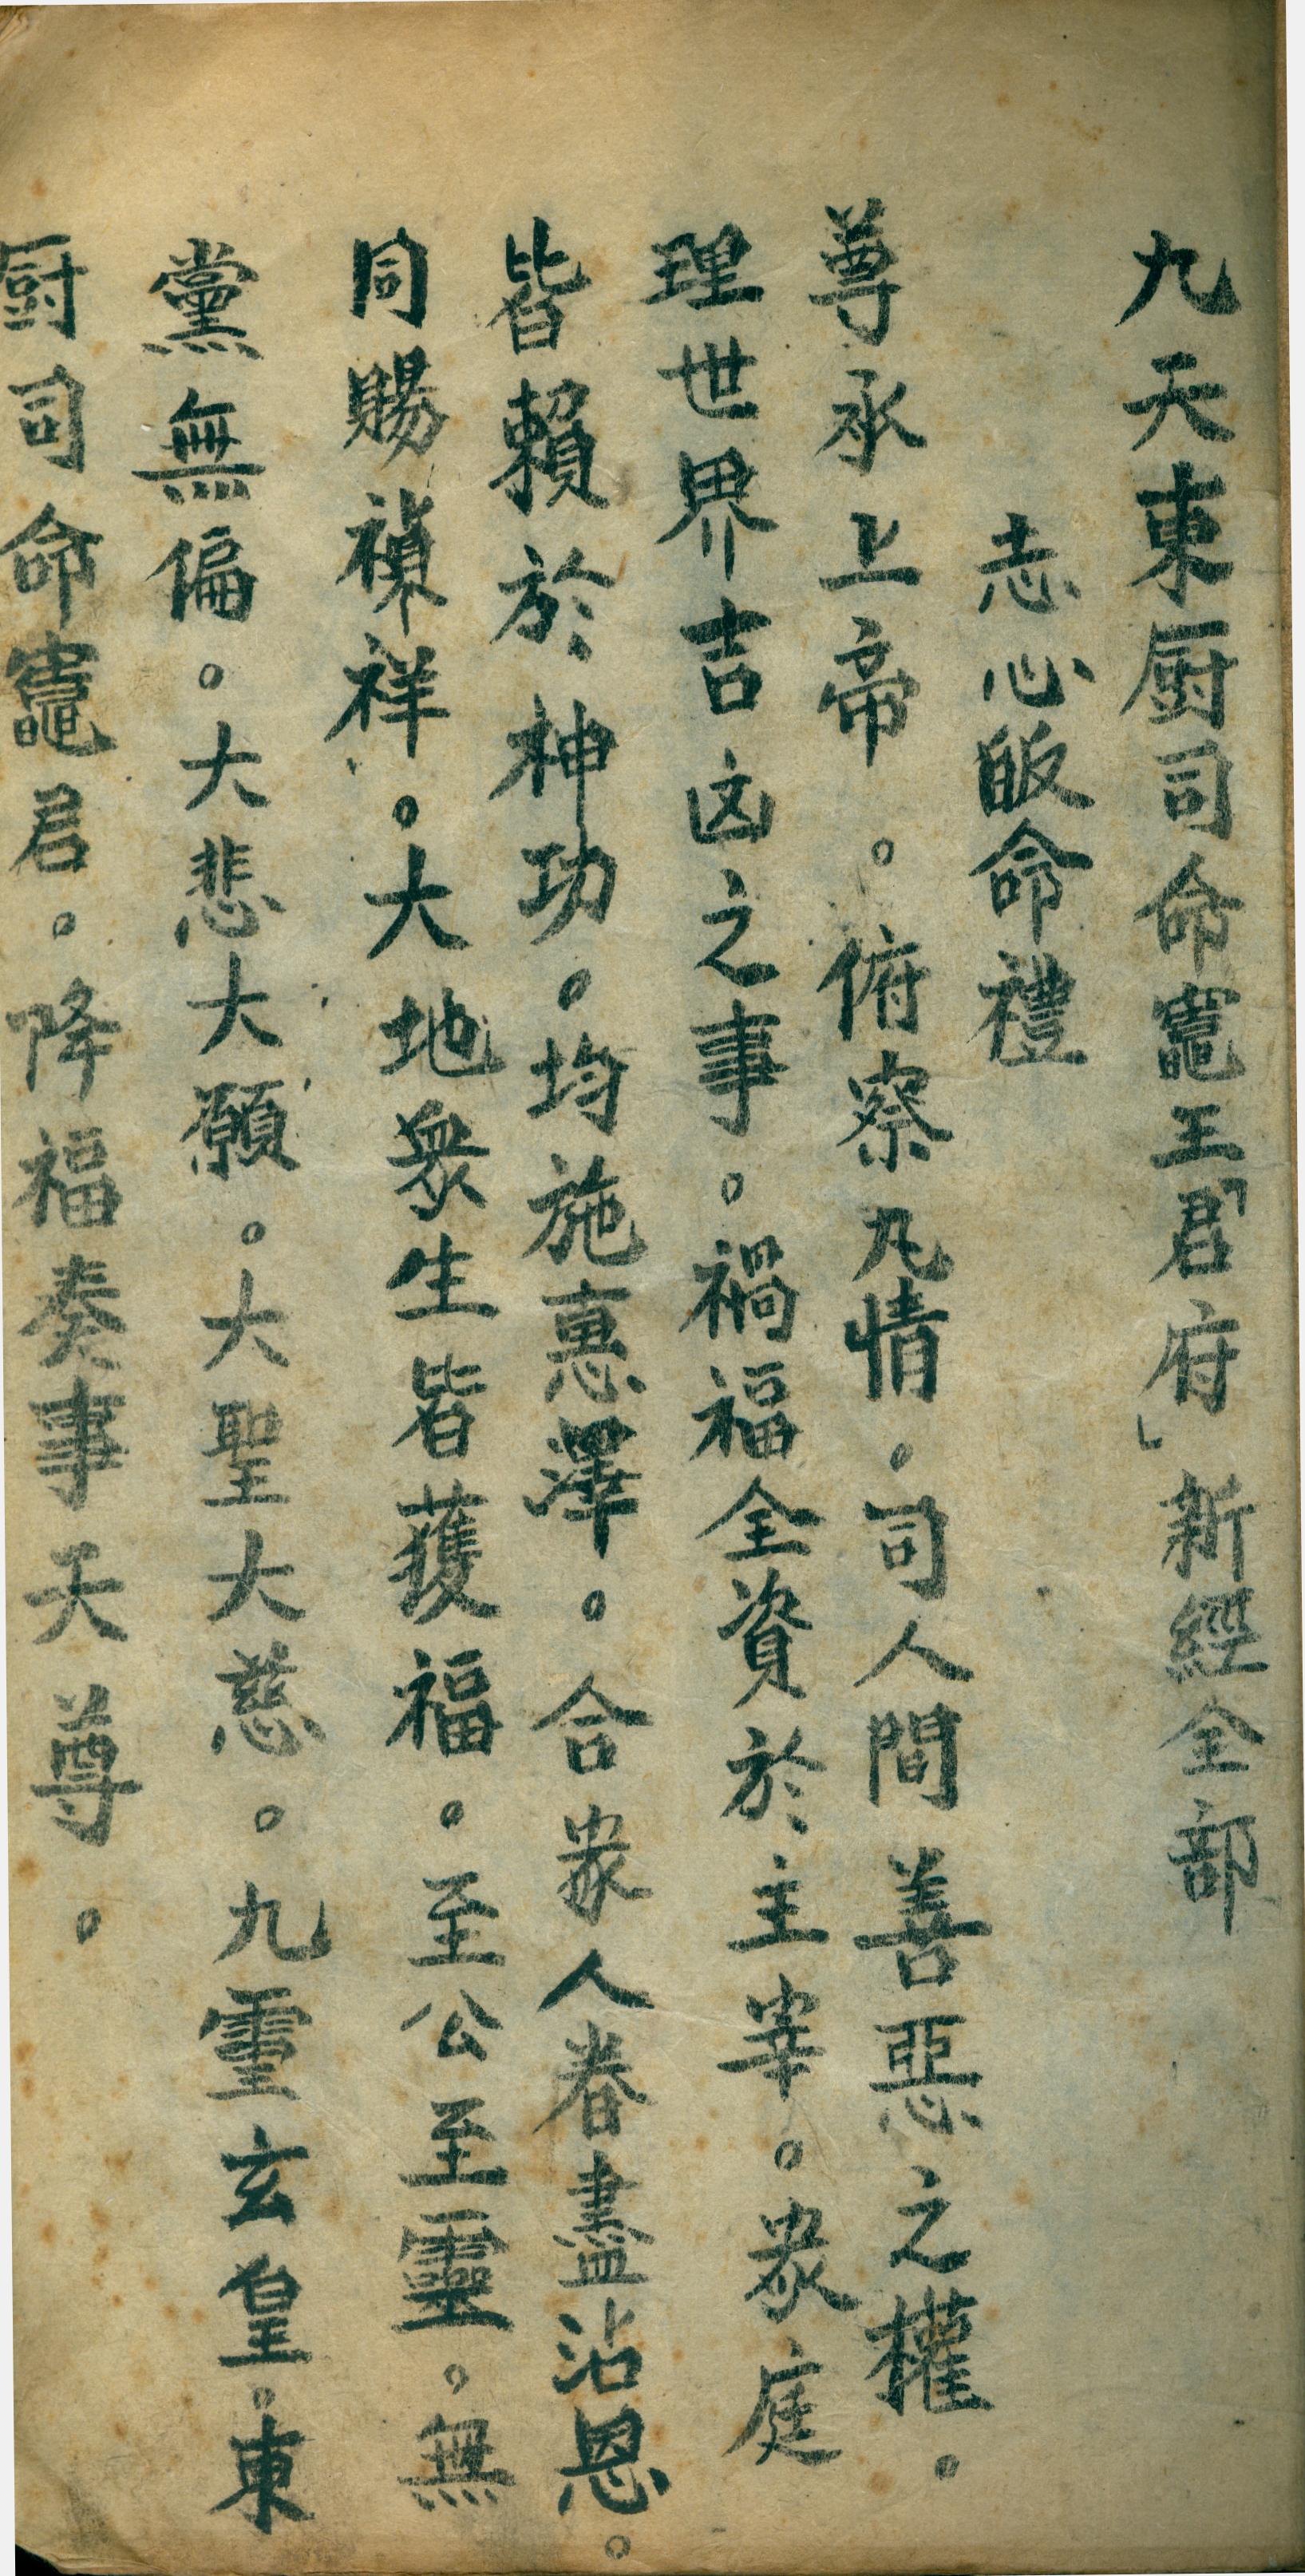 九天東厨司命竈王「君府」新經全部
志心皈命禮
尊承上帝。俯察凡情。司人間善惡之權。
理世界吉凶之事。禍福全資於主宰。家庭
皆賴於神功。均施惠澤。合家人眷盡沾恩。
同賜禎祥。大地衆生皆獲福。至公至靈。無
黨無偏。大悲大願。大聖大慈。九靈玄皇。東
厨司命竈君。降福奏事天尊。